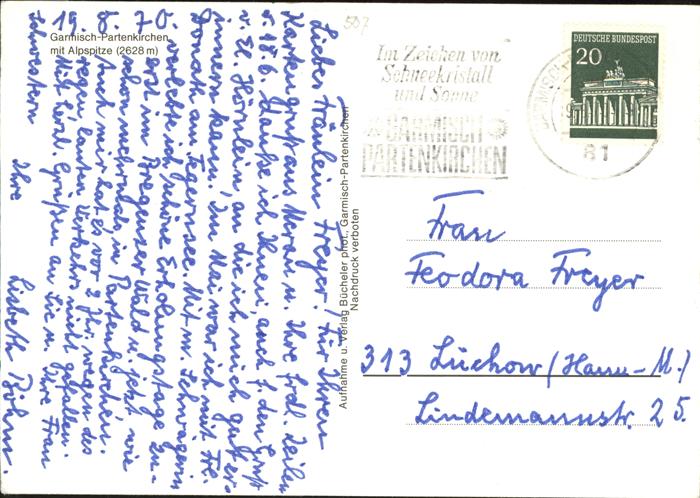 507
Garmisch-Partenkirchen
mit Alpspitze (2628 m)
19. 8. 70.
Liebes Fräulein Freyer! Für Ihren
Kartengruß aus Meran u. Ihre frdl. Zeilen
v. 18.6. danke ich Ihnen, auch f. den Gruß
v. El. Hörnlein, an die ich mich gut er-
innern kann. Im Mai war ich mit Frl.
Donath am Tegernsee. Mit m. Schwägerin
verlebte ich schöne Erholungstage zu-
erst im Bregenzer Wald u. jetzt wie
schon mehrmals in Partenkirchen.
Auch mir hat es vor 2 Jhr. wegen des
regen, lauten Verkehrs nicht gefallen.
Mit herzl. Grüßen an Sie u. Ihre Frau
Schwestern Ihre
Lisbeth Böhm.
Aufnahme u. Verlag Bücheler phot., Garmisch-Partenkirchen
Nachdruck verboten
Im Zeichen von
Schneekristall
und Sonne
GARMISCH
PARTENKIRCHEN
DEUTSCHE BUNDESPOST
20
81
Frau
Feodora Freyer
313 Lüchow (Hann.-M.)
Lindemannstr. 25.